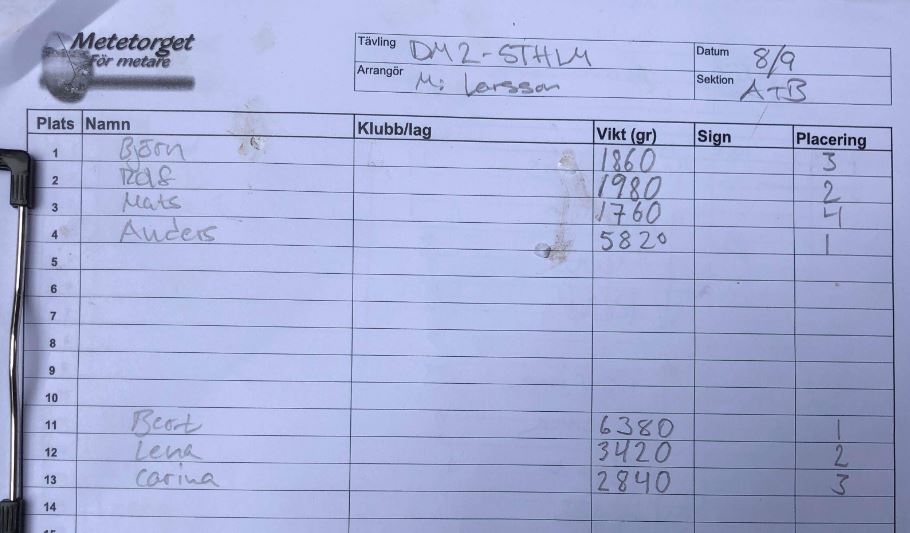 Metetorget
För metare
Tävling DM2-STHLM Datum 8/9
Arrangör M: Larsson Sektion A+B
Plats Namn Klubb/lag Vikt (gr) Sign Placering
1 Björn 1860 3
2 1980 2
3 Mats 1760 4
4 Anders 5820 1
5
6
7
8
9
10
11 6380 1
12 Lena 3420 2
13 Carina 2840 3
14